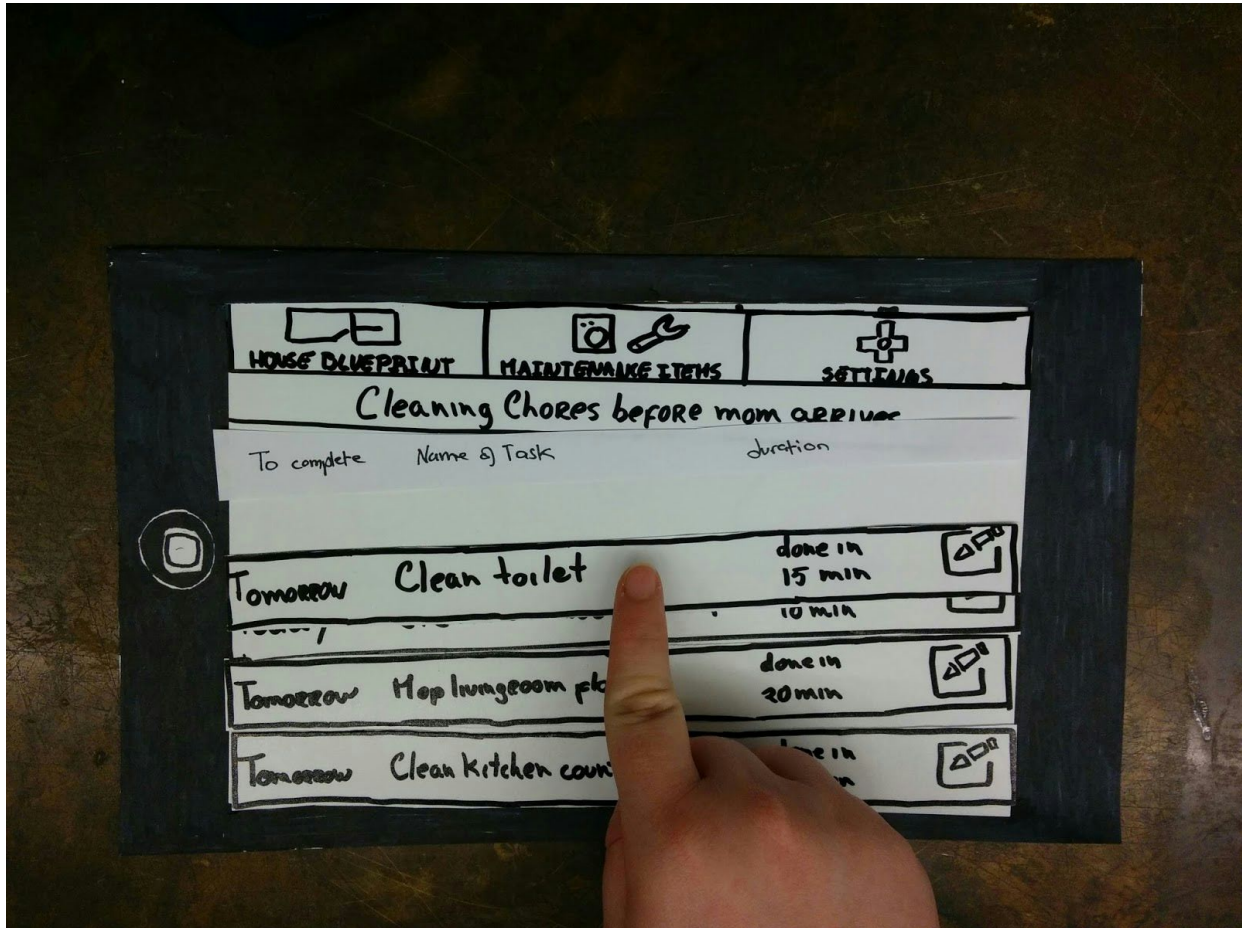 HOUSE BLUEPRINT
MAINTENANKE ITEMS
SETTINGS
Cleaning Chores before mom arrives
To complete Name of Task duration
Tomorrow Clean toilet done in
15 min
10 min
Tomorrow Mop livingroom done in
20 min
Tomorrow Clean Kitchen